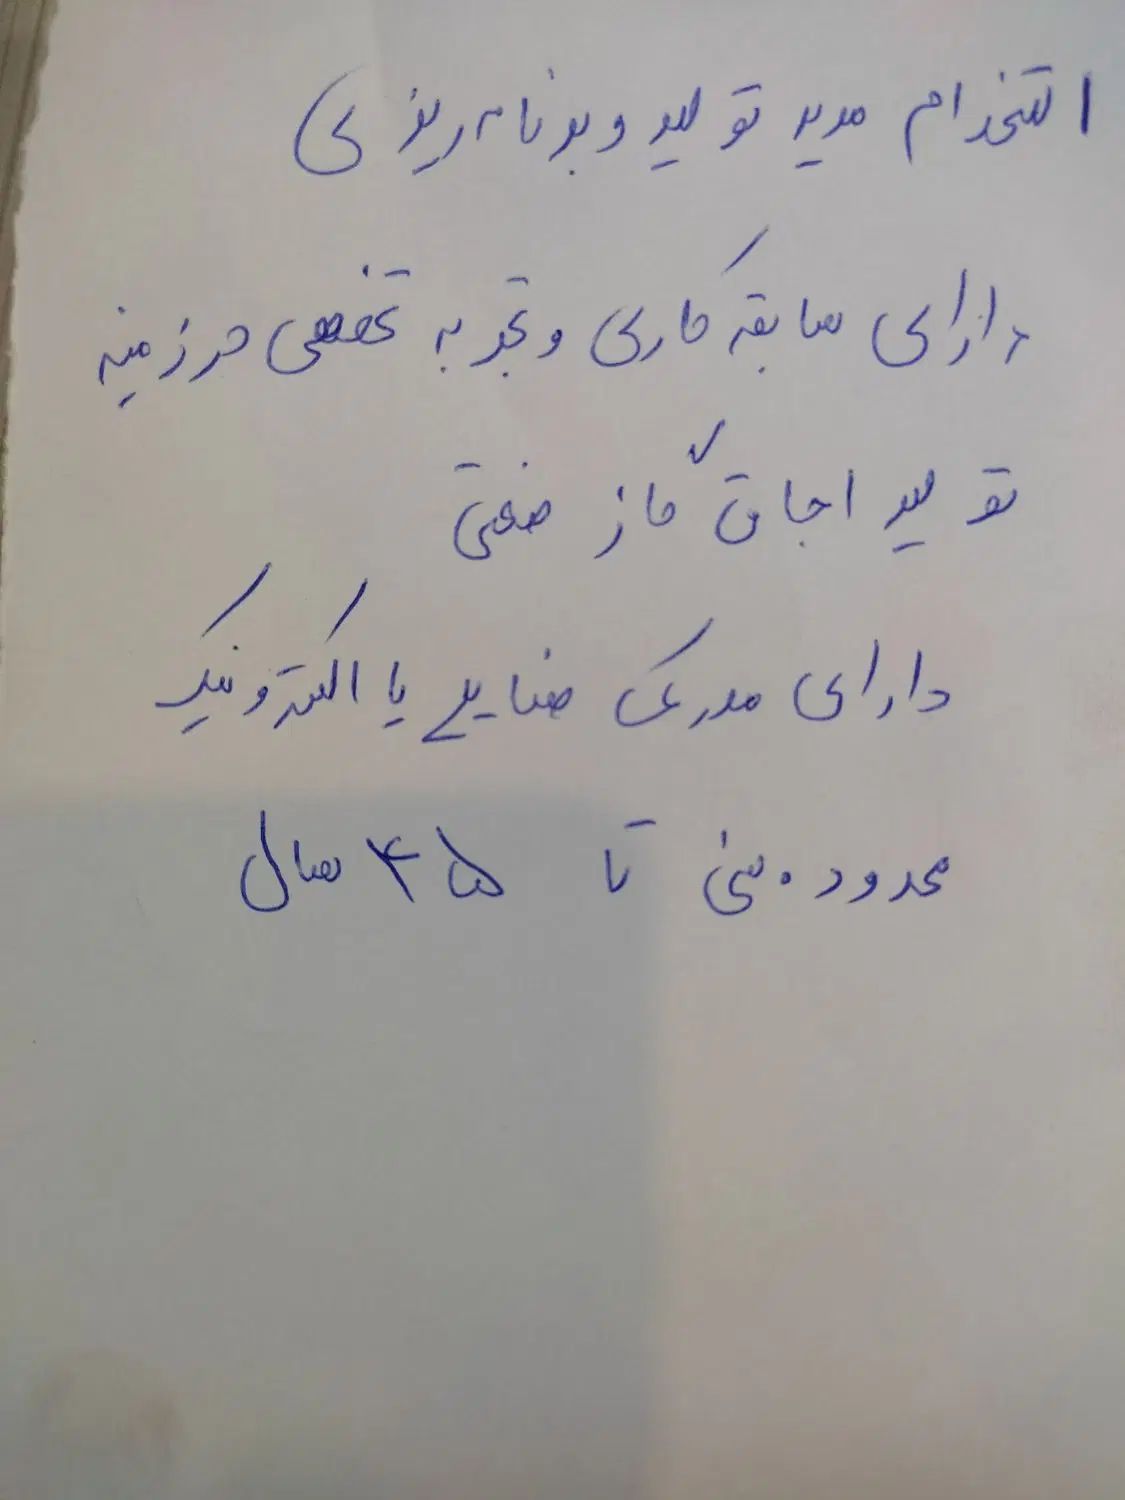 استخدام مدیر تولید و برنامه ریزی
دارای سابقه کاری و تجربه تخصصی در زمینه
تولید اجاق گاز صنعتی
دارای مدرک صنایع یا الکترونیک
محدوده سنی تا ۴۵ سال